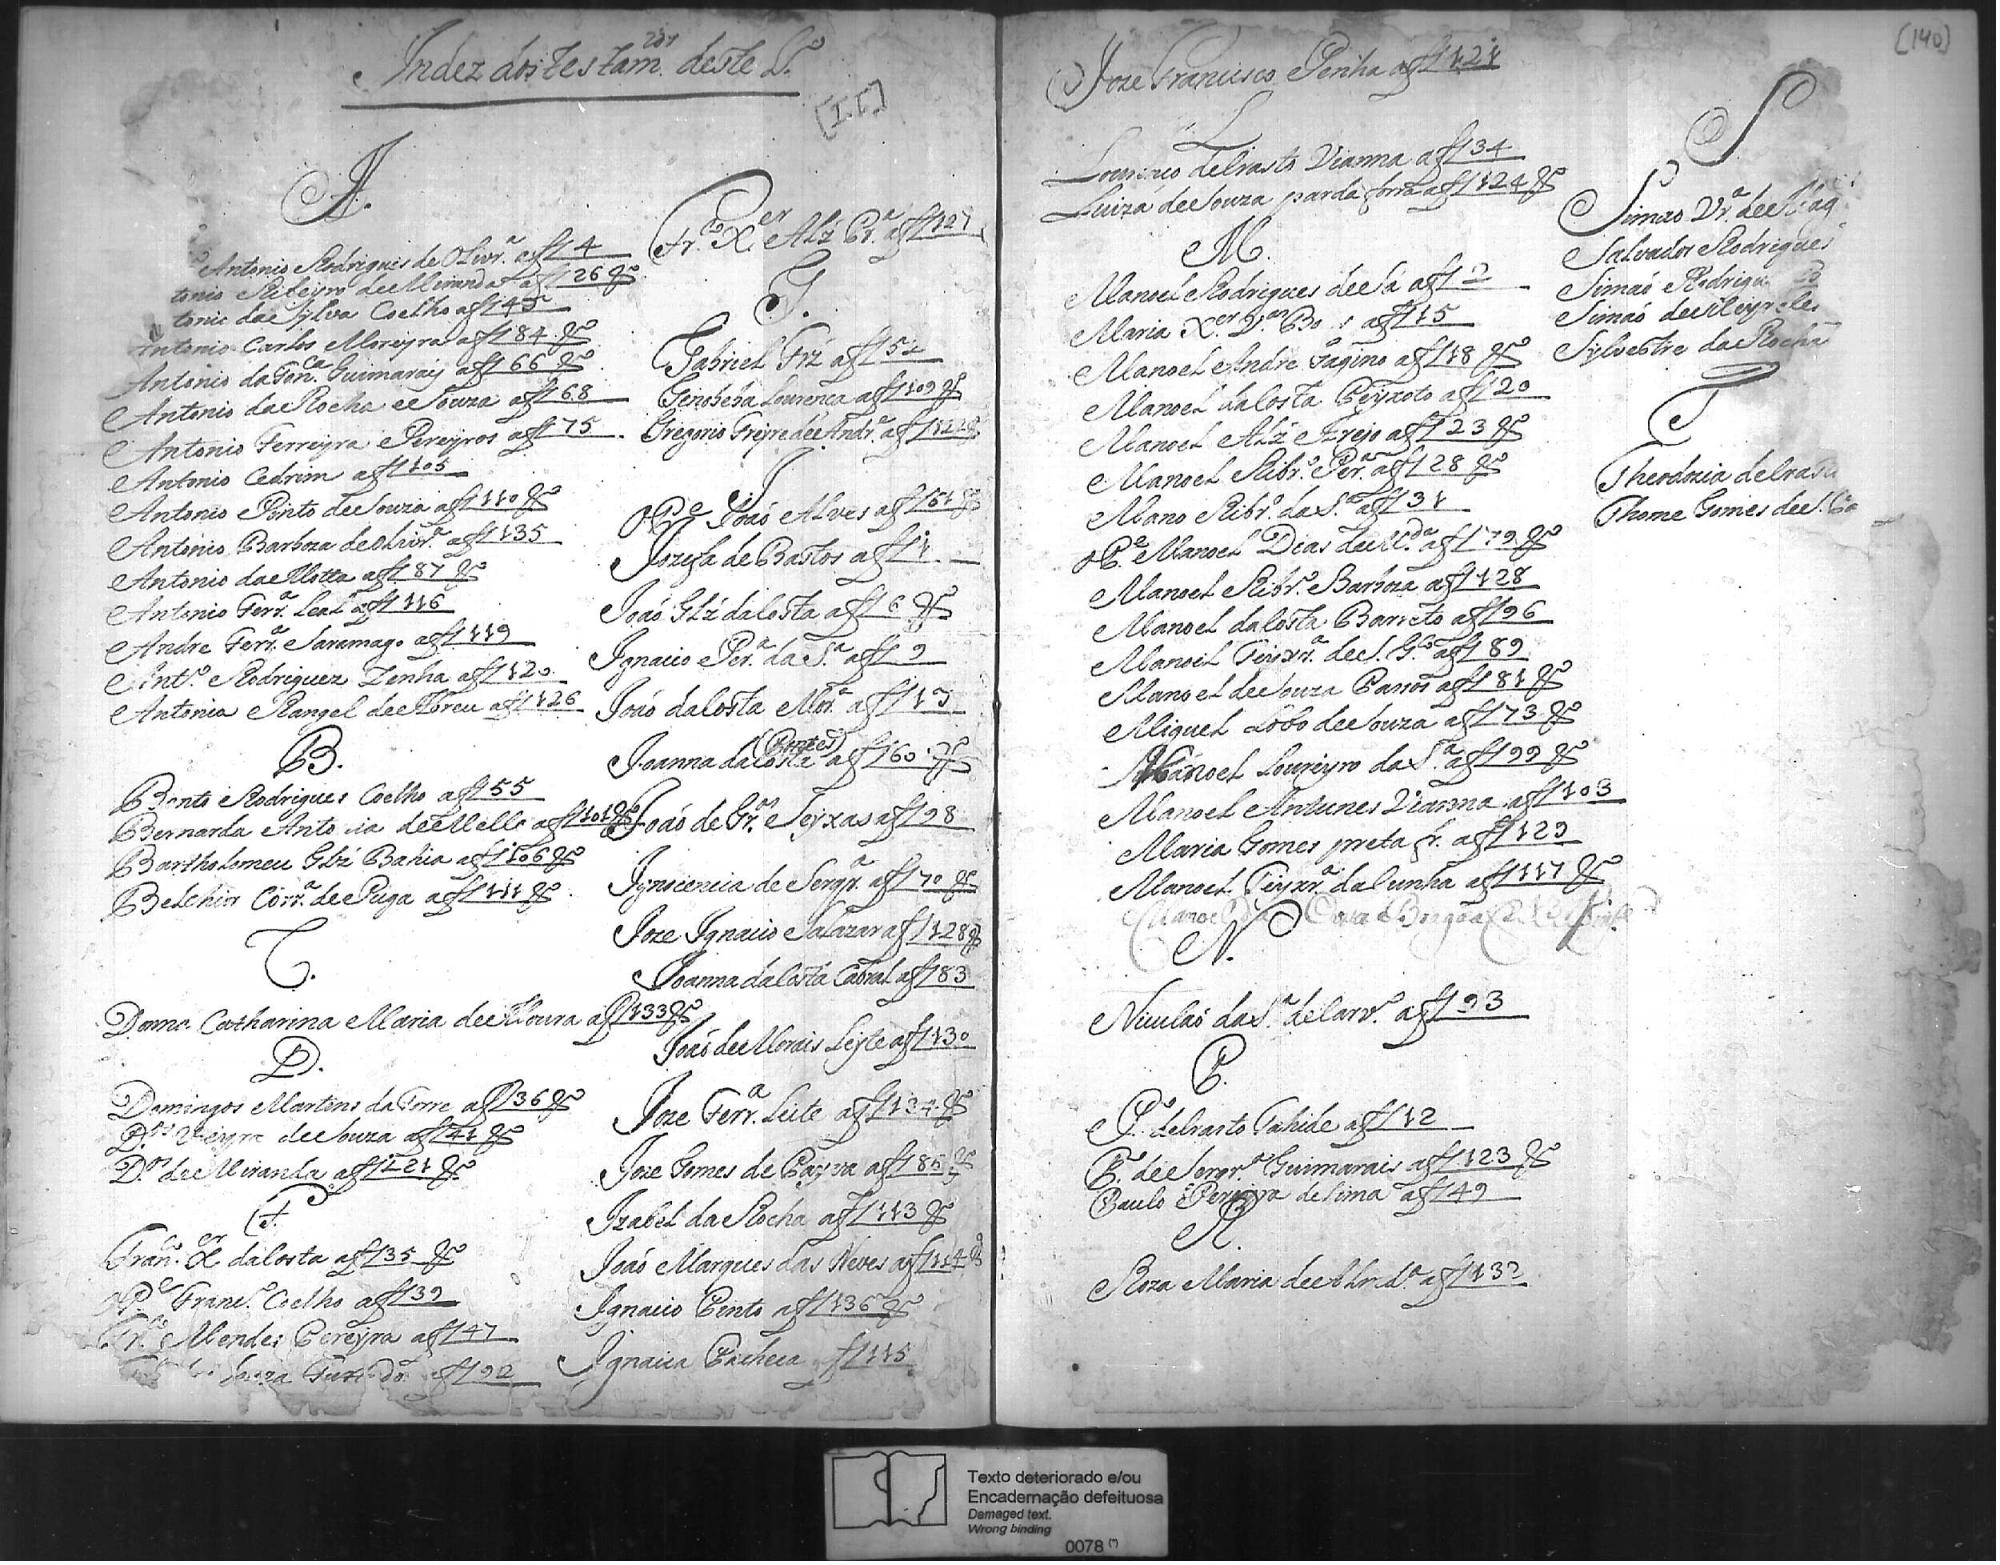 Index dos testam.tos deste L.o
A.
Antonio Rodrigues de Olivr.a af 4
tonio Ribeyro de Miranda af 26 vo
tonio da Sylva Coelho af 45
Antonio Carlos Moreyra af 84 vo
Antonio da Fon.ca Guimarais af 66 vo
Antonio da Rocha e Souza af 68
Antonio Ferreyra Pereyros af 75
Antonio Cedrim af 105
Antonio Pinto de Souza af 110 vo
Antonio Barboza de Olivr.a af 135
Antonio da Motta af 87 vo
Antonio Ferr.a Leal af 116
Andre Ferr.a Saramago af 119
Ant.o Rodriguez Zenha af 120
Antonia Rangel de Abreu af 126
B.
Bento Rodrigues Coelho af 55
Bernarda Antonia de Mello af 101 vo
Bartholomeu Glz Bahia af 106 vo
Belchior Corr.a de Puga af 111 vo
C.
Dona Catharina Maria de Moura af 133 vo
D.
Domingos Martins da Torre af 36 vo
D.os Vieyra de Souza af 41 vo
D.os de Miranda af 121 vo
F.
Fran.co X.er da Costa af 35 vo
o P.e Franc.o Coelho af 39
Fr.co Mendes Pereyra af 47
af 92
Fr.co X.er Alz Pr.a af 127
G.
Gabriel Frz af 52
Genobeba Lourença af 109 vo
Gregorio Freyre de Andr.e af 122 vo
J
o P.e Joaó Alves af 51 vo
Jozefa de Bastos af 1
Joaó Glz da Costa af 6 vo
Ignacio Per.a da S.a af 9
Joaó da Costa Mor.a af 13
Joanna da Costa (Pontes) af 60 vo
Joaó de Gr.os Seyxas af 98
Ignocencia de Serqr.a af 70 vo
Joze Ignacio Salazar af 128 vo
Joanna da Costa Cabral af 83
Joaó de Morais Leyte af 130
Joze Ferr.a Leite af 134 vo
Joze Gomes de Payva af 86 vo
Izabel da Rocha af 113 vo
Joaó Marques das Neves af 114 vo
Ignacio Pinto af 136 vo
Ignacia Pacheca af 115
[140]
Joze Francisco Penha af 121
L
Lourenço de Crasto Vianna af 34
Luiza de Souza parda forra af 124 vo
M.
Manoel Rodrigues de Sá af 2
Maria X.er af 15
Manoel Andre Fagino af 18 vo
Manoel da Costa Peyxoto af 20
Manoel Alz Frejo af 23 vo
Manoel Ribr.o Per.a af 28 vo
Mano Ribr.o da S.a af 31
o P.e Manoel Dias de af 79 vo
Manoel Ribr.o Barboza af 128
Manoel da Costa Barreto af 96
Manoel Teyxr.a de S. G.lo af 89
Manoel de Souza Barros af 81 vo
Miguel Lobo de Souza af 73 vo
Manoel Loureyro da S.a af 99 vo
Manoel Antunes Vianna af 103
Maria Gomes preta f. af 129
Manoel Teyxr.a da Cunha af 117 vo
N.
Niculaó da S.a de Carv.o af 93
P.
P.o de Crasto Tahide af 12
P.o de Serqr.a Guimarais af 123 vo
Paulo Pereyra de Lima af 49
R.
Roza Maria de Almd.a af 132
S
Simaó Vr.a de
Salvador Rodrigues
Simaó Rodrigu
Simaó de
Sylvestre da Rocha
T
Theodozia de Crasto
Thome Gomes de S.
Texto deteriorado e/ou
Encadernação defeituosa
Damaged text.
Wrong binding
0078 (*)